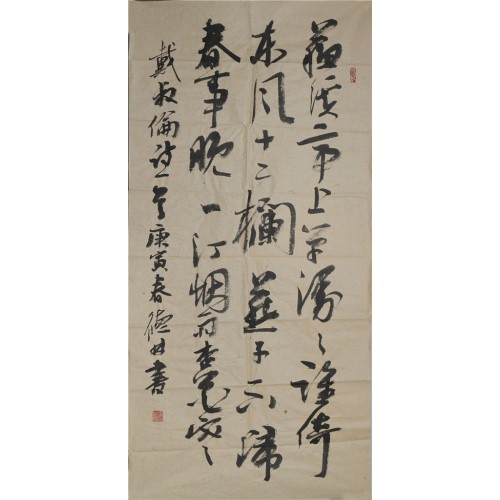 蘇溪亭上草漫々誰倚
東風十二欄燕子不歸
春事晚一汀烟雨杏花寒
戴叔倫詩一首庚寅春德書